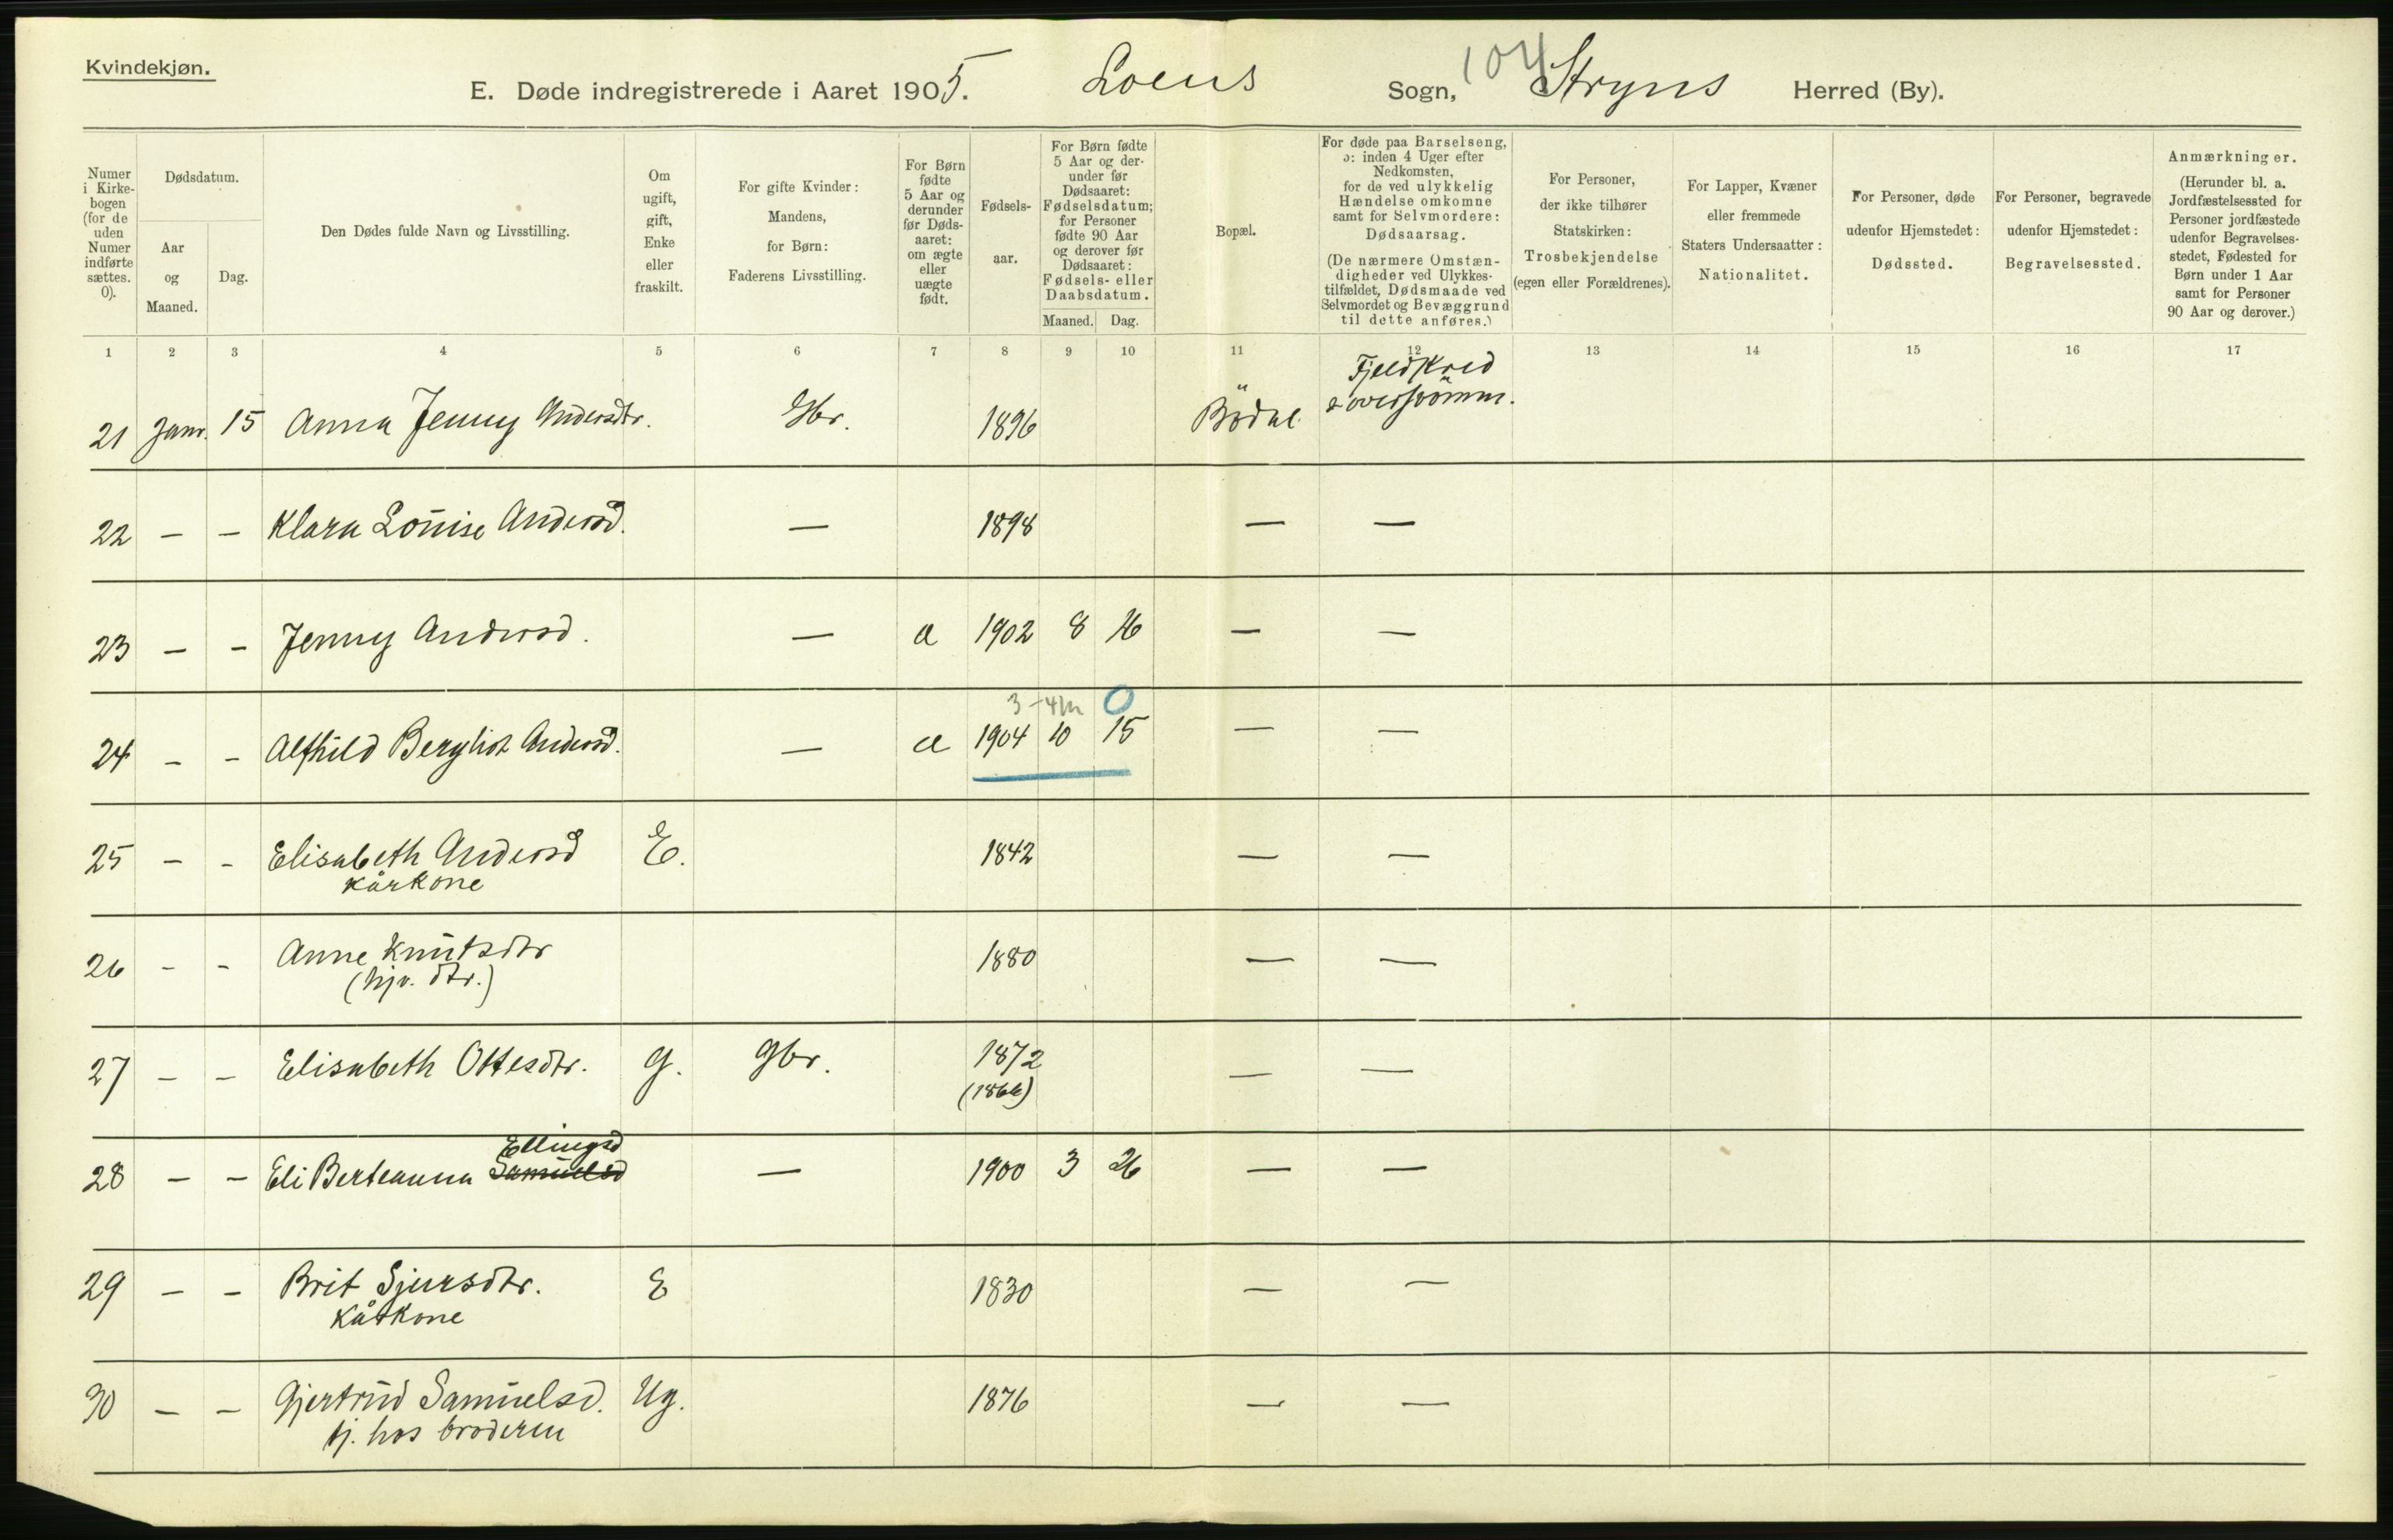 Kvindekjøn.
E. Døde indregistrerede i Aaret 1905. Loens Sogn, 104 Stryns Herred (By).
Numer i Kirkebogen (for de uden Numer indførte sættes. 0).
Dødsdatum.
Aar og Maaned.
Dag.
Den Dødes fulde Navn og Livsstilling.
Om ugift, gift, Enke eller fraskilt.
For gifte Kvinder: Mandens, for Børn: Faderens Livsstilling.
For Børn fødte 5 Aar og derunder før Dødsaaret: om ægte eller uægte født.
Fødselsaar.
For Børn fødte 5 Aar og derunder før Dødsaaret: Fødselsdatum; for Personer fødte 90 Aar og derover før Dødsaaret: Fødsels- eller Daabsdatum.
Maaned. Dag.
Bopæl.
For døde paa Barselseng, ɔ: inden 4 Uger efter Nedkomsten, for de ved ulykkelig Hændelse omkomne samt for Selvmordere: Dødsaarsag.
(De nærmere Omstændigheder ved Ulykkestilfældet, Dødsmaade ved Selvmordet og Bevæggrund til dette anføres.)
For Personer, der ikke tilhører Statskirken: Trosbekjendelse (egen eller Forældrenes).
For Lapper, Kvæner eller fremmede Staters Undersaatter: Nationalitet.
For Personer, døde udenfor Hjemstedet: Dødssted.
For Personer, begravede udenfor Hjemstedet: Begravelsessted.
Anmærkninger.
(Herunder bl. a. Jordfæstelsessted for Personer jordfæstede udenfor Begravelsesstedet, Fødested for Børn under 1 Aar samt for Personer 90 Aar og derover.)
1 2 3 4 5 6 7 8 9 10 11 12 13 14 15 16 17
Fjeldskred
21 Janr. 15 Anna Jenny Andersdtr. Gbr. 1896 Bödal & oversvömm.
22 — — Klara Louise Andersd. — 1898 — —
23 — — Jenny Andersd. — a 1902 8 16 — —
3-4m 0
24 — — Alfhild Bergliot Andersd. — a 1904 10 15 — —
25 — — Elisabeth Andersd E. 1842 — —
kårkone
26 — — Anne Knutsdtr 1880 — —
(hjv. dtr.)
27 — — Elisabeth Ottesdtr. g. Gbr. 1872 — —
(1866)
Ellingsd
28 — — Eli Berteanna Samuelsd — 1900 3 26 — —
29 — — Brit Sjursdtr. E 1830 — —
Kårkone
30 — — Gjertrud Samuelsd. Ug. 1876 — —
tj. hos broderen